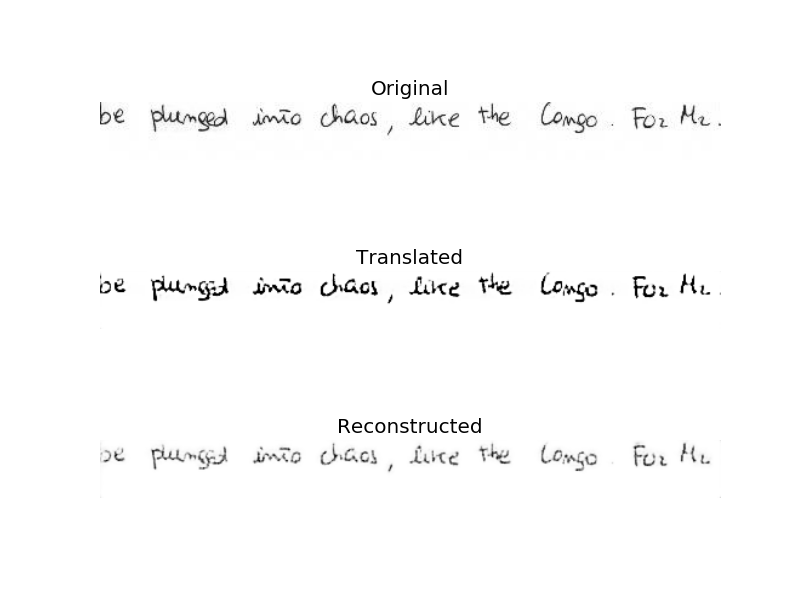 Original
be plunged into chaos, like the Congo. For Mr.
Translated
be plunged into chaos, like the Congo. For Mr.
Reconstructed
be plunged into chaos, like the Congo. For Mr